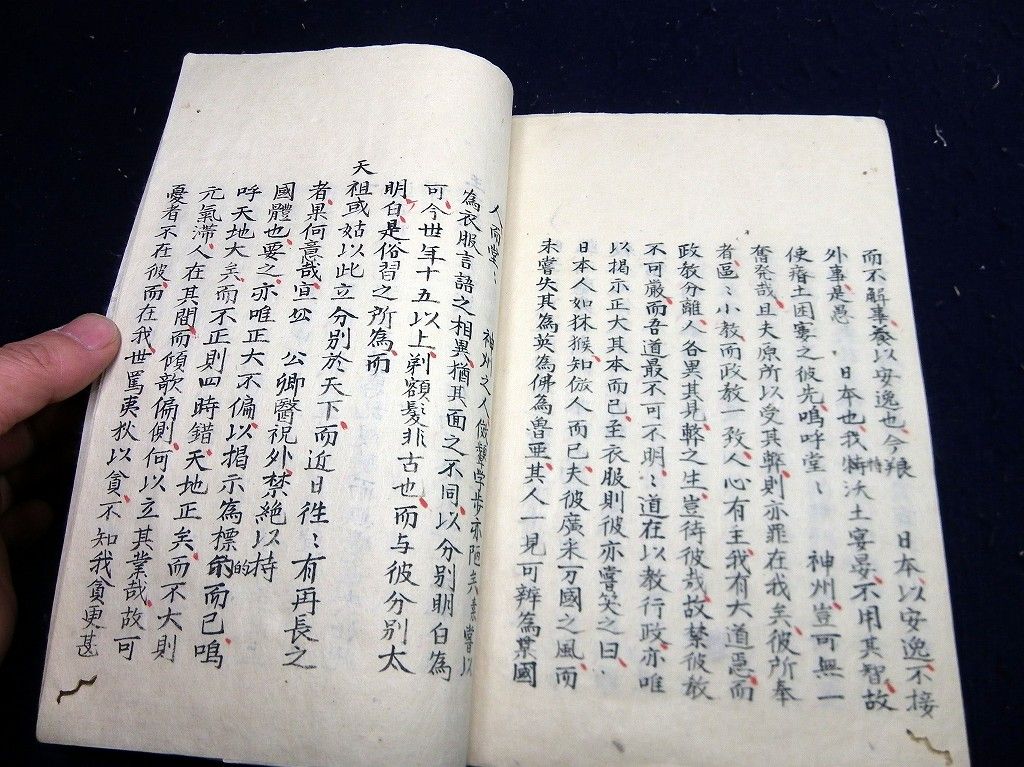 日本、以安逸、不接
而不解事、養以安逸也、今
外事、是愚　日本也、我特沃土宴晏、不用其智、故
使瘠土困窶之彼先、嗚呼堂〻　神州、豈可無一
奮発哉、且夫原所以受其弊、則亦罪在我矣、彼所奉
者、區〻小教、而政教一致、人心有主、我有大道焉、而
政教分離、人各異其見、弊之生、豈待彼哉、故禁彼教
不可厳、而吾道最不可不明、〻道在以教行政、亦唯
以掲示正大其本而已、至衣服則彼亦嘗笑之曰、
日本人如猿猴、知倣人而已、夫彼廣来万國之風、而
未嘗失其為英為佛為魯亜、其人一見可辨為某國
人、而堂〻　神州之人、倣顰学歩、亦陋矣、嘗以
為衣服言語之相異、猶其面之不同、以分別明白為
可、今世年十五以上、剃額髪、非古也、而与彼分別太
明白、是俗習之所為、而
天祖或姑以此立分別於天下、而近日往〻有再長之
者、果何意哉、宜公　公卿醫祝外、禁絶以持
國體也、要之、亦唯正大不偏、以掲示為標的而已、嗚
呼天地大矣、而不正則四時錯、天地正矣、而不大則
元氣滞、人在其間、而傾欹偏側、何以立其業哉、故可
憂者不在彼、而在我、世罵夷狄以貪、不知我貪更甚